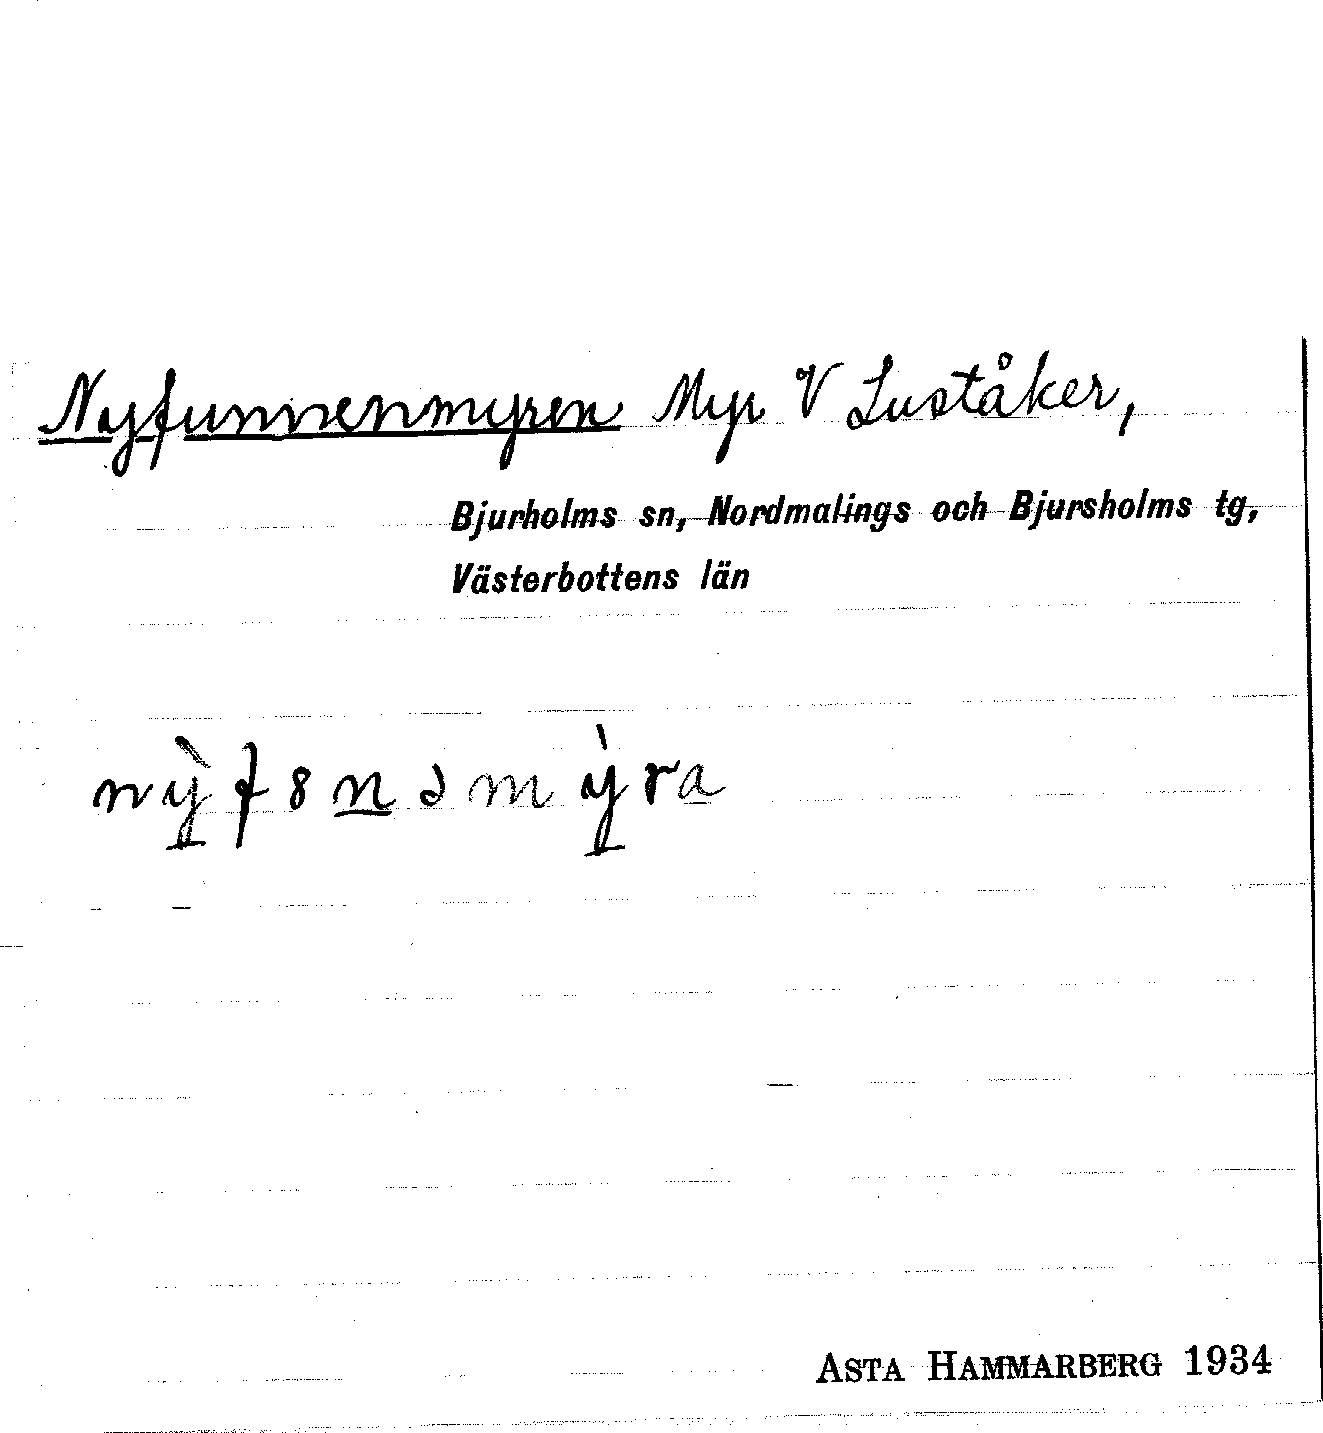 Nyfunnenmyren Myr V Luståker,
Bjurholms sn, Nordmalings och Bjursholms tg,
Västerbottens län
nỳf8nəmỳra
ASTA HAMMARBERG 1934